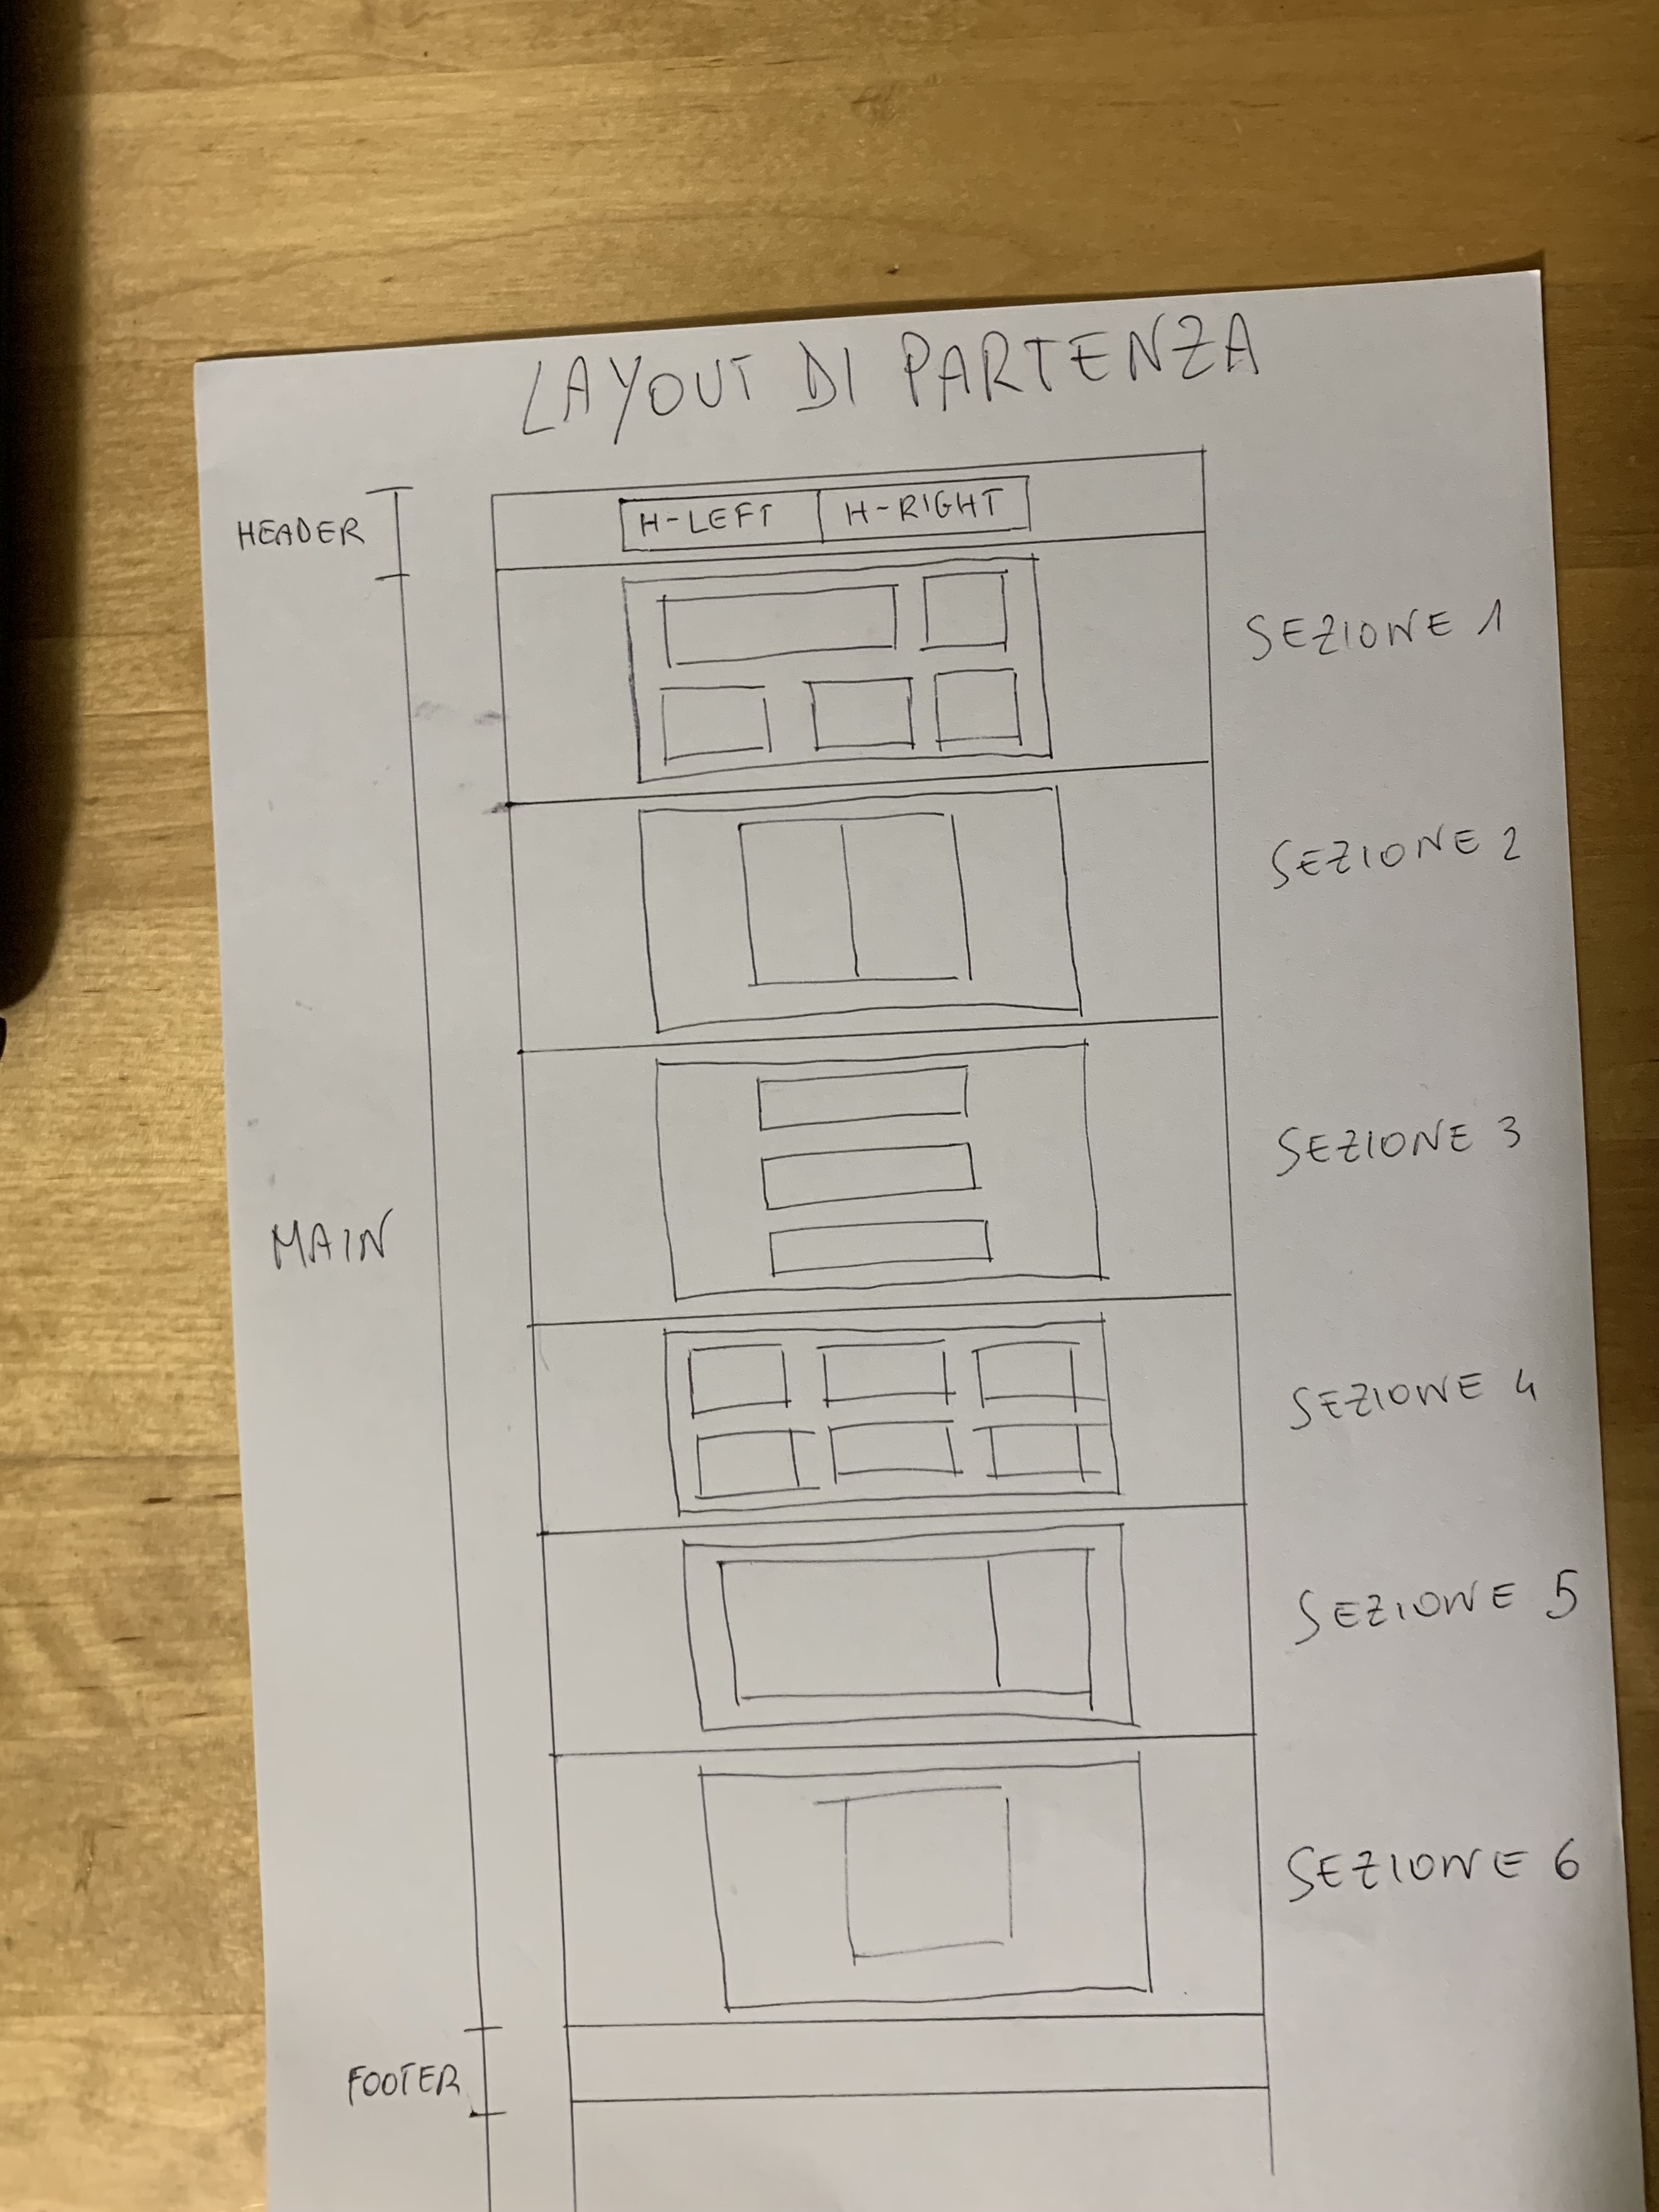 LAYOUT DI PARTENZA
HEADER
H-LEFT
H-RIGHT
SEZIONE 1
SEZIONE 2
SEZIONE 3
MAIN
SEZIONE 4
SEZIONE 5
SEZIONE 6
FOOTER